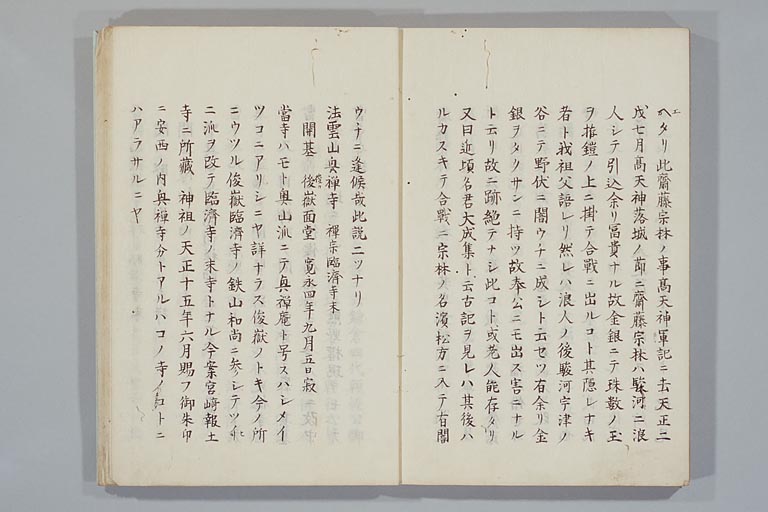 ヘタリ此齋藤宗林ノ事髙天神軍記ニ云天正二
戌七月髙天神落城ノ節ニ齋藤宗林ハ駿河ニ浪
人シテ引込余リ冨貴ナル故金銀ニテ珠数ノ玉
ヲ拵鎧ノ上ニ掛テ合戰ニ出ルコト其隠レナキ
者ト我祖父語レリ然レハ浪人ノ後駿河宇津ノ
谷ニテ野伏ニ闇ウチニ成シト云セツ有余リ金
銀ヲタクサンニ持ツ故奉公ニモ出ス害ニナル
ト云リ故ニ跡絶テナシ此コト或老人能存タリ
又曰近頃名君大成集ト云古記ヲ見レハ其後ハ
ルカスキテ合戰ニ宗林ノ名濱松方ニ入テ有闇
ウチニ逢候哉此説二ツナリ
法雲山奥禅寺 禅宗臨濟寺末
開基 後嶽面堂 寛永四年九月五日寂
當寺ハモト奥山派ニテ真禅庵ト号スハシメイ
ツコニアリシニヤ詳ナラス俊嶽ノトキ今ノ所
ニウツル俊嶽臨濟寺ノ鉄山和尚ニ参シテツ井
ニ派ヲ改テ臨濟寺ノ末寺トナル今案宮﨑報土
寺ニ所藏 神祖ノ天正十五年六月賜フ御朱印
ニ安西ノ内奥禅寺分トアルハコノ寺ノコトニ
ハアラサルニヤ